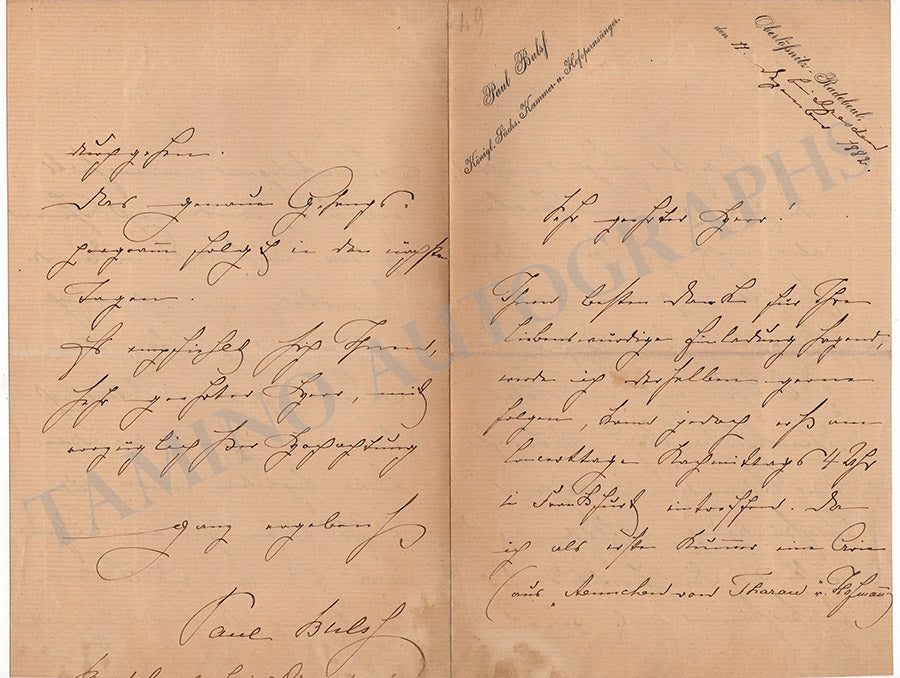 49
Paul Bulß
Königl. Sächs. Kammer- u. Hofopernsänger.
Oberlößnitz-Radebeul,
bei Dresden
den 11. Dezember 1882.
Sehr geehrter Herr!
Ihnen besten Dank für Ihre
liebenswürdige Einladung sagend,
werde ich derselben gerne
folgen, kann jedoch erst am
Concerttage Nachmittags 4 Uhr
in Frankfurt eintreffen. Da
ich als erste Nummer eine Arie
(aus "Aennchen von Tharau" v. Hofmann)
durchgehen.
Das genaue Gesangs-
programm folgt in den nächsten
Tagen.
Es empfiehlt sich Ihnen,
sehr geehrter Herr, mit
vorzüglichster Hochachtung
ganz ergebenst
Paul Bulß
TAMINO AUTOGRAPHS